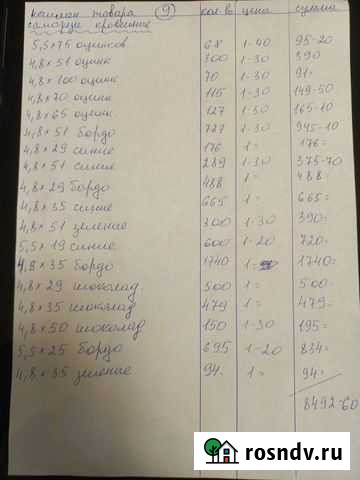 товара 9 кол-в цена сумма
саморезы кровельные
5,5×75 оцинков 68 1-40 95-20
4,8×51 оцинк 300 1-30 390
4,8×100 оцинк 70 1-30 91=
4,8×70 оцинк 115 1-30 149-50
4,8×65 оцинк 127 1-30 165-10
4,8×51 бордо 727 1-30 945-10
4,8×29 синие 176 1= 176=
4,8×51 синие 289 1-30 375-70
4,8×29 бордо 488 1= 488=
4,8×35 синие 665 1= 665=
4,8×51 зеленые 300 1-30 390=
5,5×19 синие 600 1-20 720=
4,8×35 бордо 1740 1= 1740=
4,8×29 шоколад 500 1= 500=
4,8×35 шоколад 479 1= 479=
4,8×50 шоколад 150 1-30 195=
5,5×25 бордо 695 1-20 834=
4,8×35 зеленые 94 1= 94=
8492-60
rosndv.ru